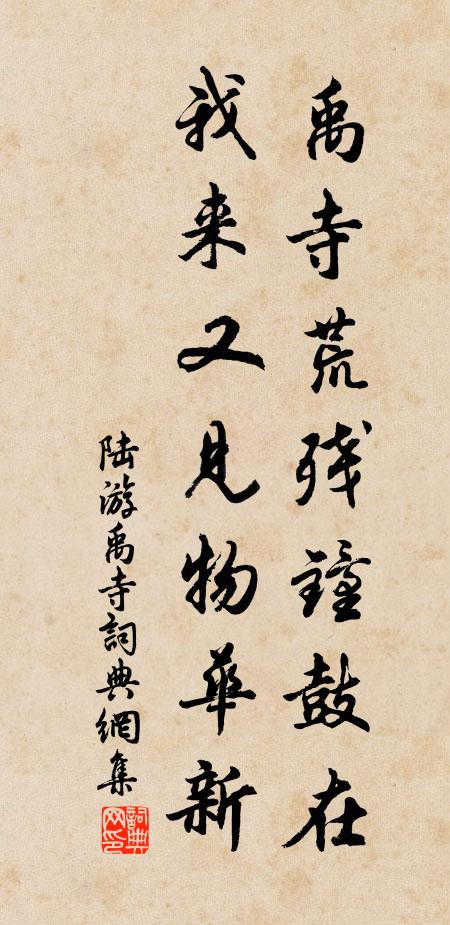 禹寺荒残鐘鼓在
我来又見物華新
陆游禹寺詞典網集
詞典網印